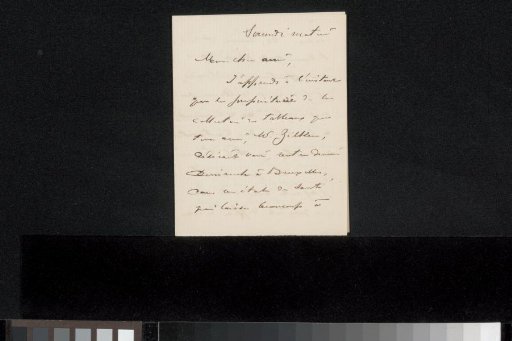 Samedi matin
Mon cher ami,
J'apprends à l'instant
que le propriétaire de la
collection de tableaux que
ton ami, Mr
désirait voir
Dimanche à Bruxelles,
dans un état de santé
qui laisse beaucoup à